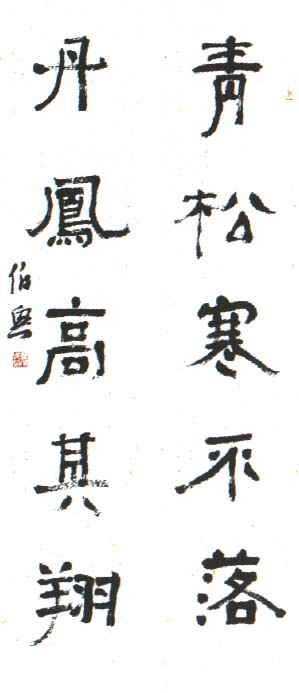 青松寒不落
丹鳳高其翔
伯輿